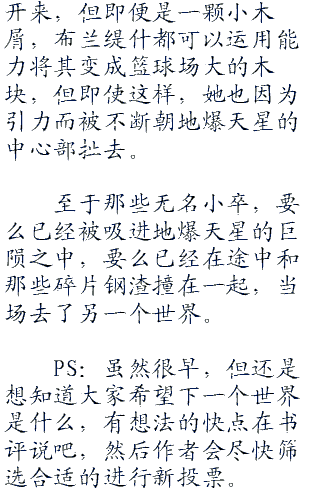 开来，但即便是一颗小木
屑，布兰缇什都可以运用能
力将其变成篮球场大的木
块，但即使这样，她也因为
引力而被不断朝地爆天星的
中心部扯去。
至于那些无名小卒，要
么已经被吸进地爆天星的巨
陨之中，要么已经在途中和
那些碎片钢渣撞在一起，当
场去了另一个世界。
PS：虽然很早，但还是
想知道大家希望下一个世界
是什么，有想法的快点在书
评说吧，然后作者会尽快筛
选合适的进行新投票。